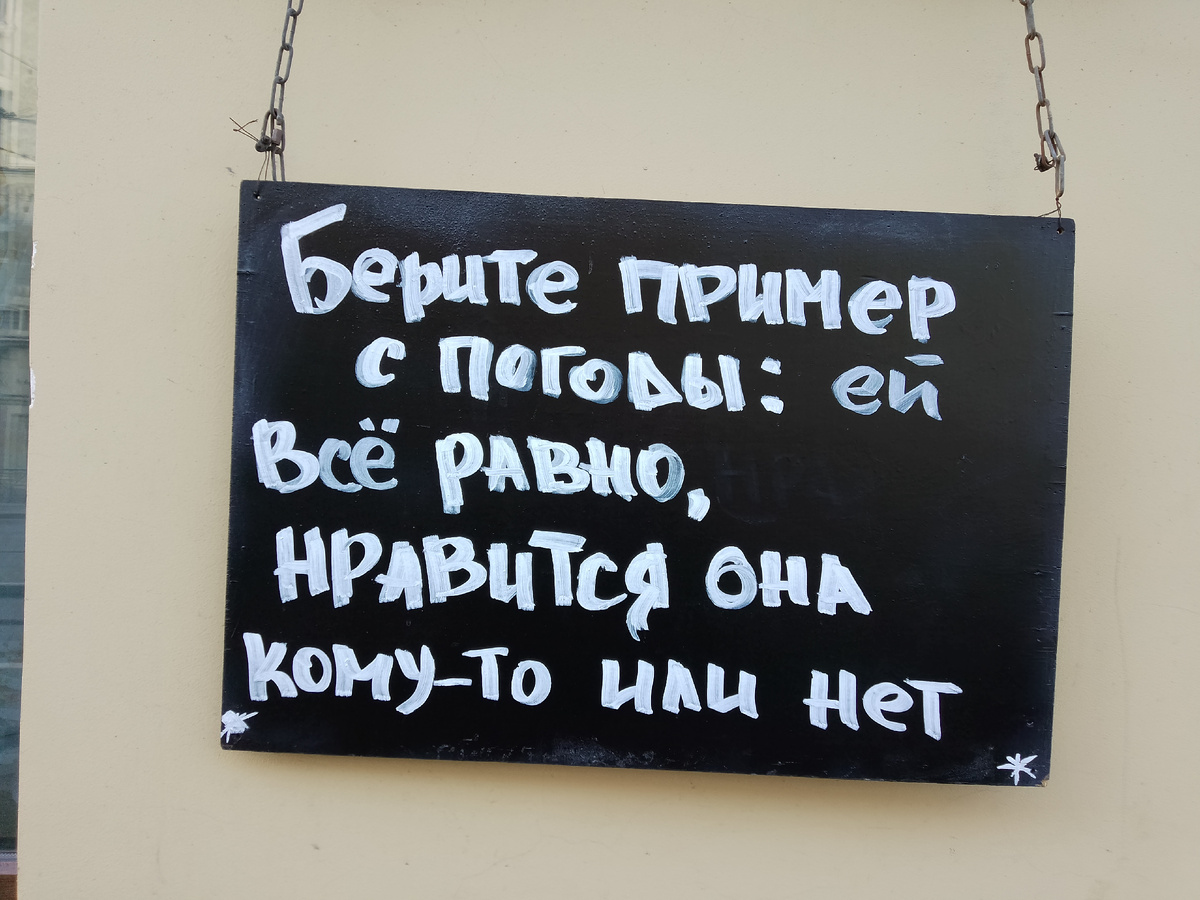 Берите пример
с погоды: ей
всё равно,
нравится она
кому-то или нет